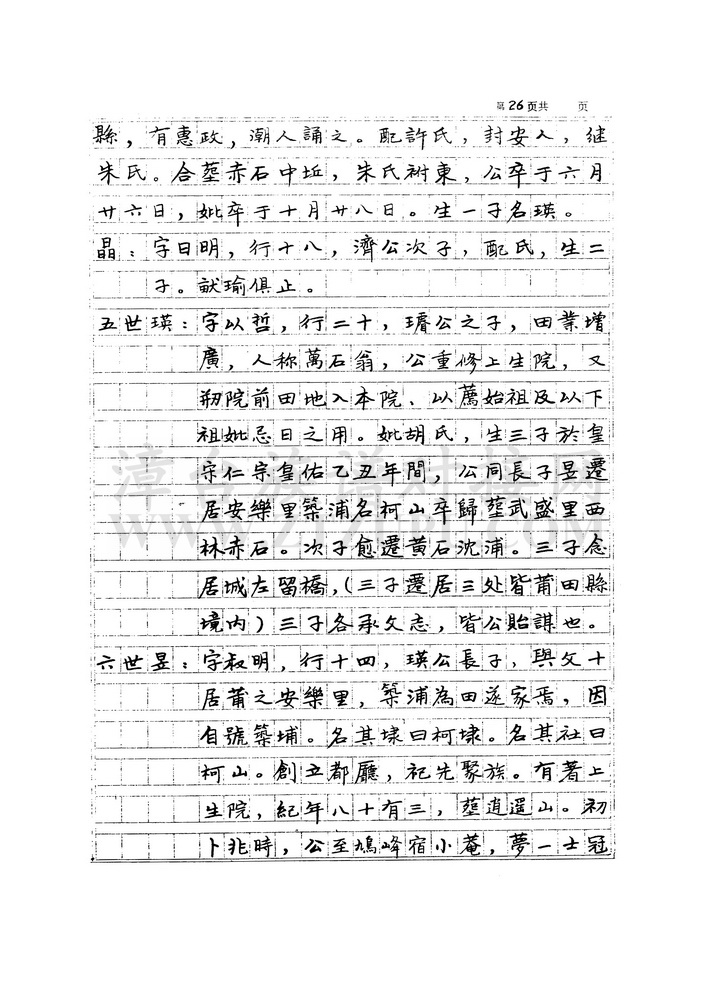 第26页共 页
縣，有惠政，潮人誦之。配許氏，封安人，继
朱氏。合塟赤石中坵，朱氏祔東，公卒于六月
廿六日，妣卒于十月廿八日。生一子名瑛。
晶：字日明，行十八，濟公次子，配氏，生二
子。瑜俱止。
五世瑛：字以哲，行二十，瑨公之子，田業增
廣，人称萬石翁，公重修上生院，又
剏院前田地入本院、以薦始祖及以下
祖妣忌日之用。妣胡氏，生三子於皇
宋仁宗皇佑乙丑年間，公同長子昱遷
居安樂里築浦名柯山卒歸塟武盛里西
林赤石。次子愈遷黄石沈浦。三子念
居城左留橋，(三子遷居三处皆莆田縣
境内)三子各承父志，皆公貽謀也。
六世昱：字叔明，行十四，瑛公長子，與父十
居莆之安樂里，築浦為田遂家焉，因
自號築埔。名其埭曰柯埭。名其社曰
柯山。創立都廳，祀先聚族。有著上
生院，紀年八十有三，塟逍遥山。初
卜兆時，公至鳩峰宿小菴，夢一士冠
漳台族谱对接网